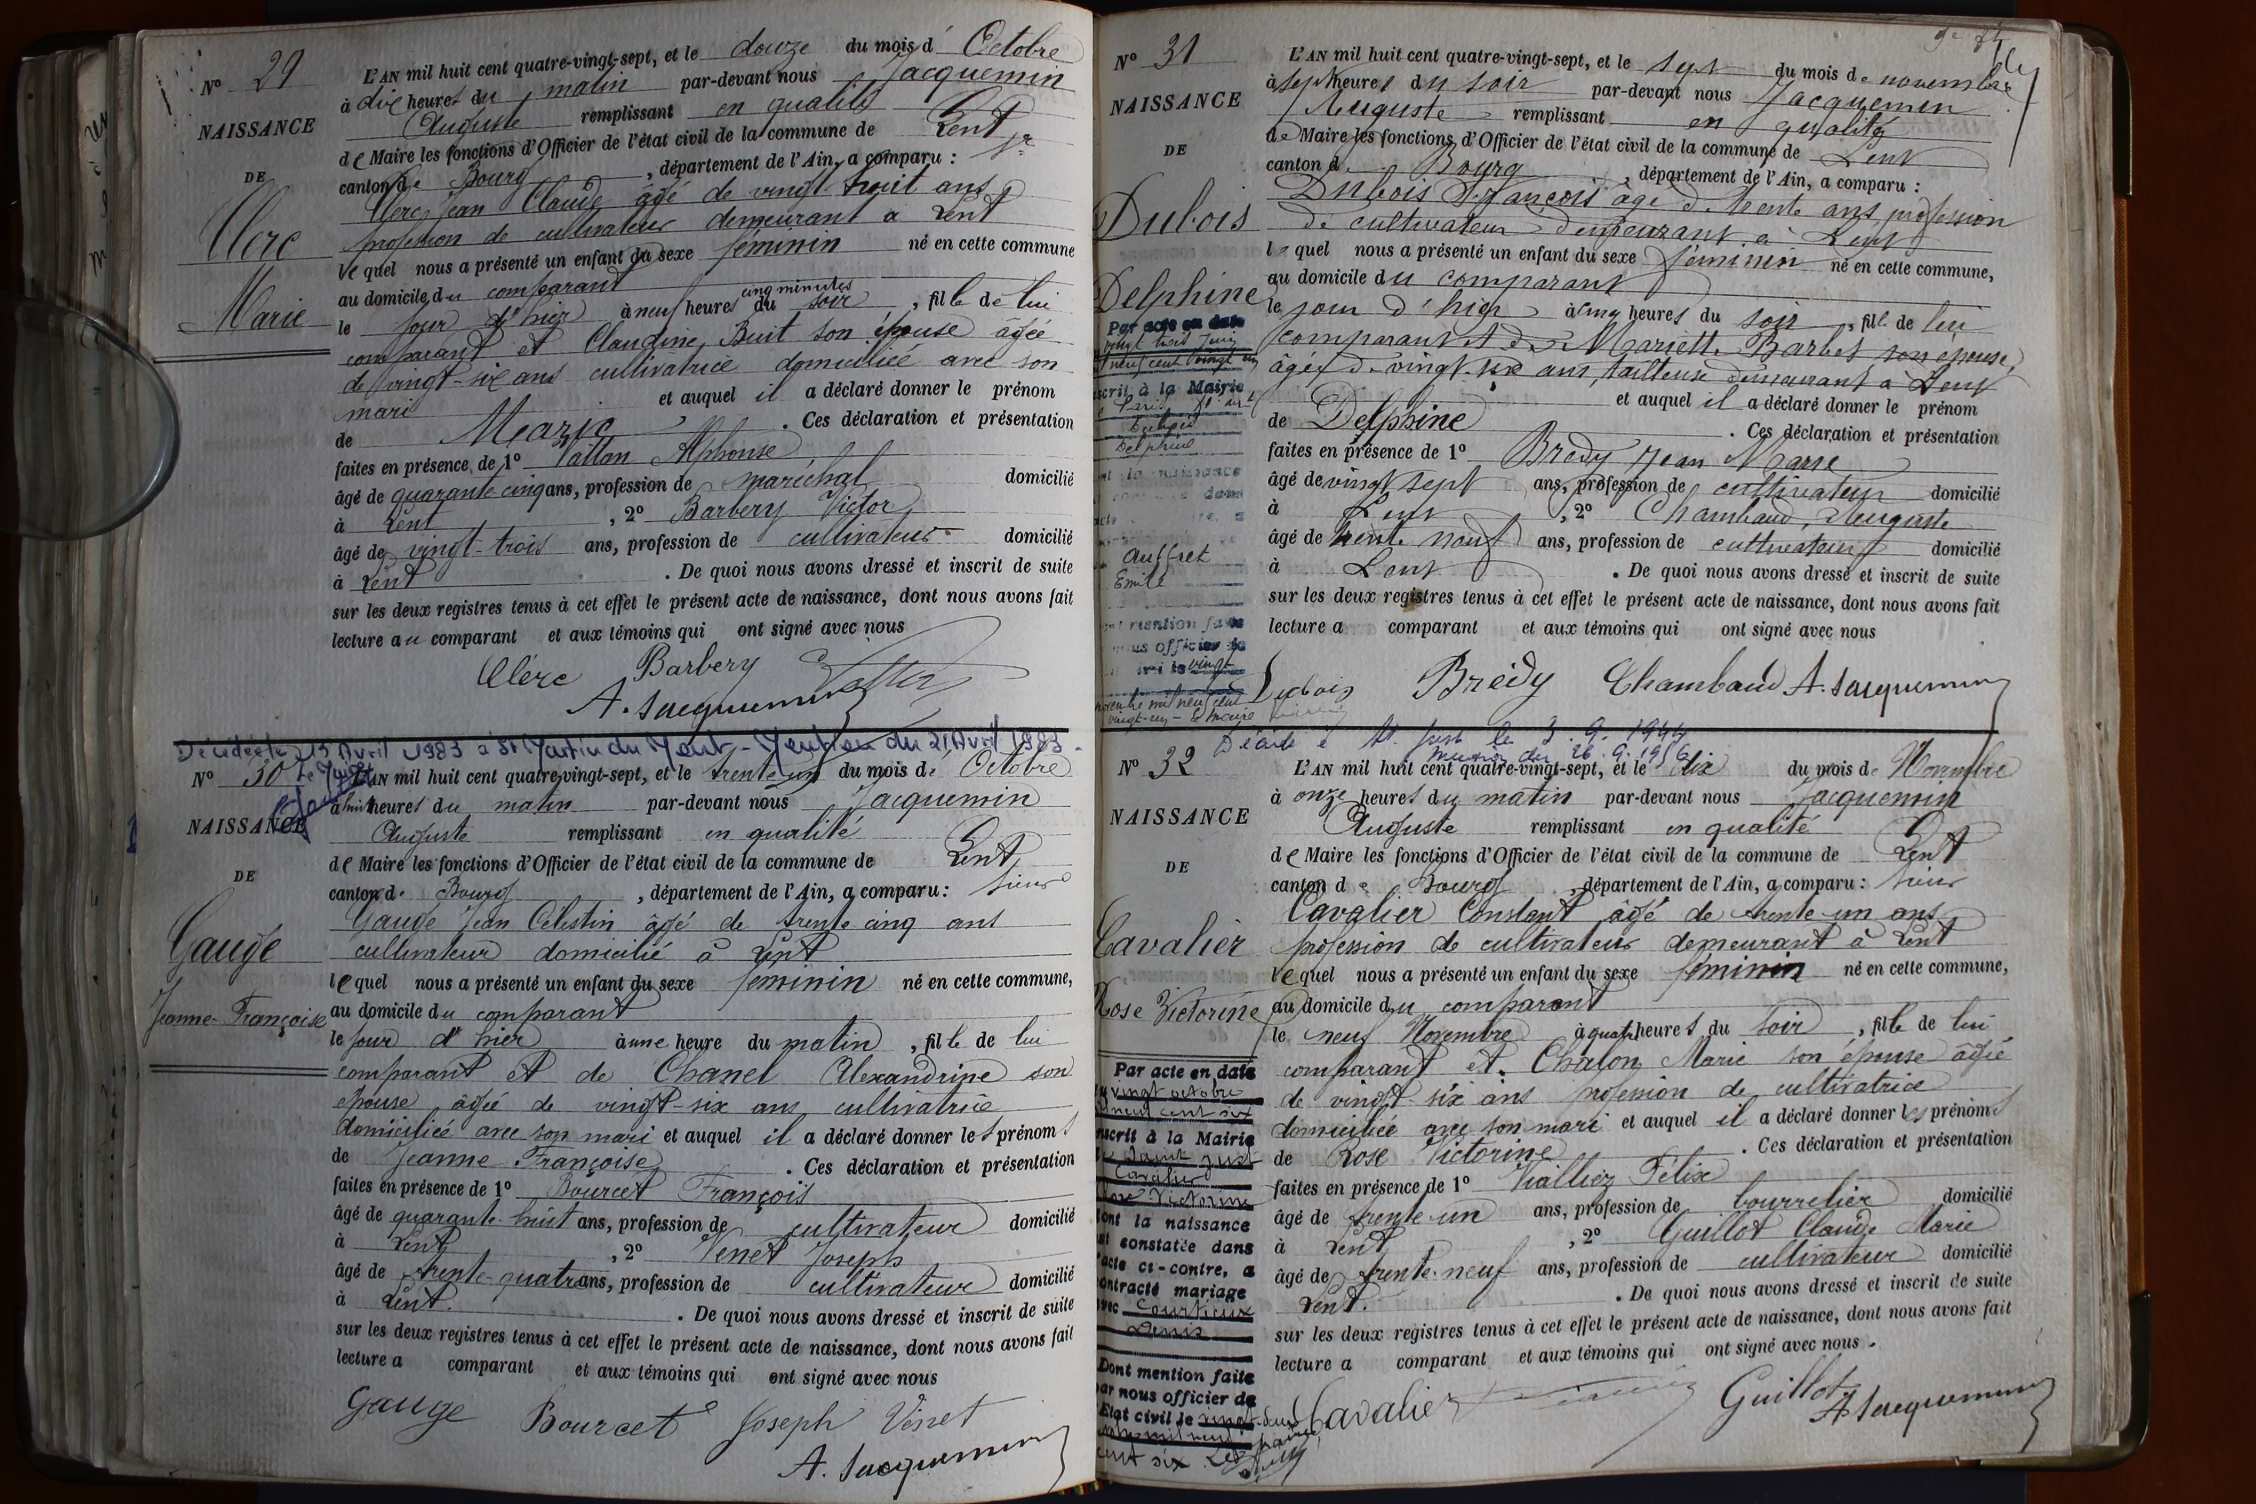 Nº 29
NAISSANCE
DE
Clerc
Marie
L'AN mil huit cent quatre-vingt-sept, et le douze du mois d' Octobre
à dix heures du matin par-devant nous Jacquemin
Auguste remplissant en qualité
de Maire les fonctions d'Officier de l'état civil de la commune de Lent
canton de Bourg, département de l'Ain, a comparu : Sr
Clerc Jean Claude âgé de vingt huit ans
profession de cultivateur demeurant à Lent
lequel nous a présenté un enfant du sexe féminin né en cette commune
au domicile du comparant
le jour d'hier à neuf heures cinq minutes du soir, fille de lui
comparant et Claudine Buit son épouse âgée
de vingt-six ans cultivatrice domiciliée avec son
mari et auquel il a déclaré donner le prénom
de Marie. Ces déclaration et présentation
faites en présence de 1º Vallon Alphonse
âgé de quarante cinq ans, profession de maréchal domicilié
à Lent, 2º Barbery Victor
âgé de vingt-trois ans, profession de cultivateur domicilié
à Lent. De quoi nous avons dressé et inscrit de suite
sur les deux registres tenus à cet effet le présent acte de naissance, dont nous avons fait
lecture au comparant et aux témoins qui ont signé avec nous
Clerc Barbery
A. Jacquemin
Décédée le 13 Avril 1983 à St Martin du Mont - Mention du 21 Avril 1983.
Nº 30
NAISSANCE
DE
Gauge
Jeanne-Françoise
L'AN mil huit cent quatre-vingt-sept, et le trente un du mois d' Octobre
à huit heures du matin par-devant nous Jacquemin
Auguste remplissant en qualité
de Maire les fonctions d'Officier de l'état civil de la commune de Lent
canton de Bourg, département de l'Ain, a comparu : sieur
Gauge Jean Célestin âgé de trente cinq ans
cultivateur domicilié à Lent
lequel nous a présenté un enfant du sexe féminin né en cette commune,
au domicile du comparant
le jour d'hier à une heure du matin, fille de lui
comparant et de Chanel Alexandrine son
épouse âgée de vingt-six ans cultivatrice
domiciliée avec son mari et auquel il a déclaré donner les prénoms
de Jeanne Françoise. Ces déclaration et présentation
faites en présence de 1º Bourcet François
âgé de quarante-huit ans, profession de cultivateur domicilié
à Lent, 2º Venet Joseph
âgé de trente-quatre ans, profession de cultivateur domicilié
à Lent. De quoi nous avons dressé et inscrit de suite
sur les deux registres tenus à cet effet le présent acte de naissance, dont nous avons fait
lecture a comparant et aux témoins qui ont signé avec nous
Gauge Bourcet Joseph Venet
A. Jacquemin
Nº 31
NAISSANCE
DE
Dubois
Delphine
Par acte en date
vingt trois juin
neuf cent vingt un
inscrit à la Mairie
Dubois
Delphine
la naissance
Auffret
Emile
mention faite
nous officier de
vingt
novembre mil neuf cent
vingt-un - Le Maire
L'AN mil huit cent quatre-vingt-sept, et le sept du mois de novembre
à sept heures du soir par-devant nous Jacquemin
Auguste remplissant en qualité
de Maire les fonctions d'Officier de l'état civil de la commune de Lent
canton d Bourg, département de l'Ain, a comparu :
Dubois François âgé de trente ans profession
de cultivateur demeurant à Lent
lequel nous a présenté un enfant du sexe féminin né en cette commune,
au domicile du comparant
le jour d'hier à cinq heures du soir, fille de lui
comparant et de Mariette Barbet son épouse,
âgée de vingt six ans, tailleuse demeurant à Lent
et auquel il a déclaré donner le prénom
de Delphine. Ces déclaration et présentation
faites en présence de 1º Bredy Jean Marie
âgé de vingt sept ans, profession de cultivateur domicilié
à Lent, 2º Chambaud, Auguste
âgé de trente neuf ans, profession de cultivateur domicilié
à Lent. De quoi nous avons dressé et inscrit de suite
sur les deux registres tenus à cet effet le présent acte de naissance, dont nous avons fait
lecture a comparant et aux témoins qui ont signé avec nous
Dubois Brédy Chambaud A. Jacquemin
Décédée à St Just le 3.9.1944
mention du 26.9.1956
Nº 32
NAISSANCE
DE
Cavalier
Rose Victorine
Par acte en date
du vingt octobre
neuf cent six
inscrit à la Mairie
de Saint Just
Cavalier
Rose Victorine
dont la naissance
est constatée dans
l'acte ci-contre, a
contracté mariage
avec Courtieux
Denis
Dont mention faite
par nous officier de
l'Etat civil le vingt-deux
octobre mil neuf
cent six. Le Maire
L'AN mil huit cent quatre-vingt-sept, et le dix du mois de Novembre
à onze heures du matin par-devant nous Jacquemin
Auguste remplissant en qualité
de Maire les fonctions d'Officier de l'état civil de la commune de Lent
canton de Bourg, département de l'Ain, a comparu : sieur
Cavalier Constant âgé de trente-un ans
profession de cultivateur demeurant à Lent
lequel nous a présenté un enfant du sexe féminin né en cette commune,
au domicile du comparant
le neuf Novembre à quatre heures du soir, fille de lui
comparant et Chalon Marie son épouse âgée
de vingt-six ans profession de cultivatrice
domiciliée avec son mari et auquel il a déclaré donner les prénoms
de Rose Victorine. Ces déclaration et présentation
faites en présence de 1º Vialliez Félix
âgé de trente-un ans, profession de bourrelier domicilié
à Lent, 2º Guillot Claude Marie
âgé de trente-neuf ans, profession de cultivateur domicilié
Lent. De quoi nous avons dressé et inscrit de suite
sur les deux registres tenus à cet effet le présent acte de naissance, dont nous avons fait
lecture a comparant et aux témoins qui ont signé avec nous.
Cavalier Guillot
A. Jacquemin